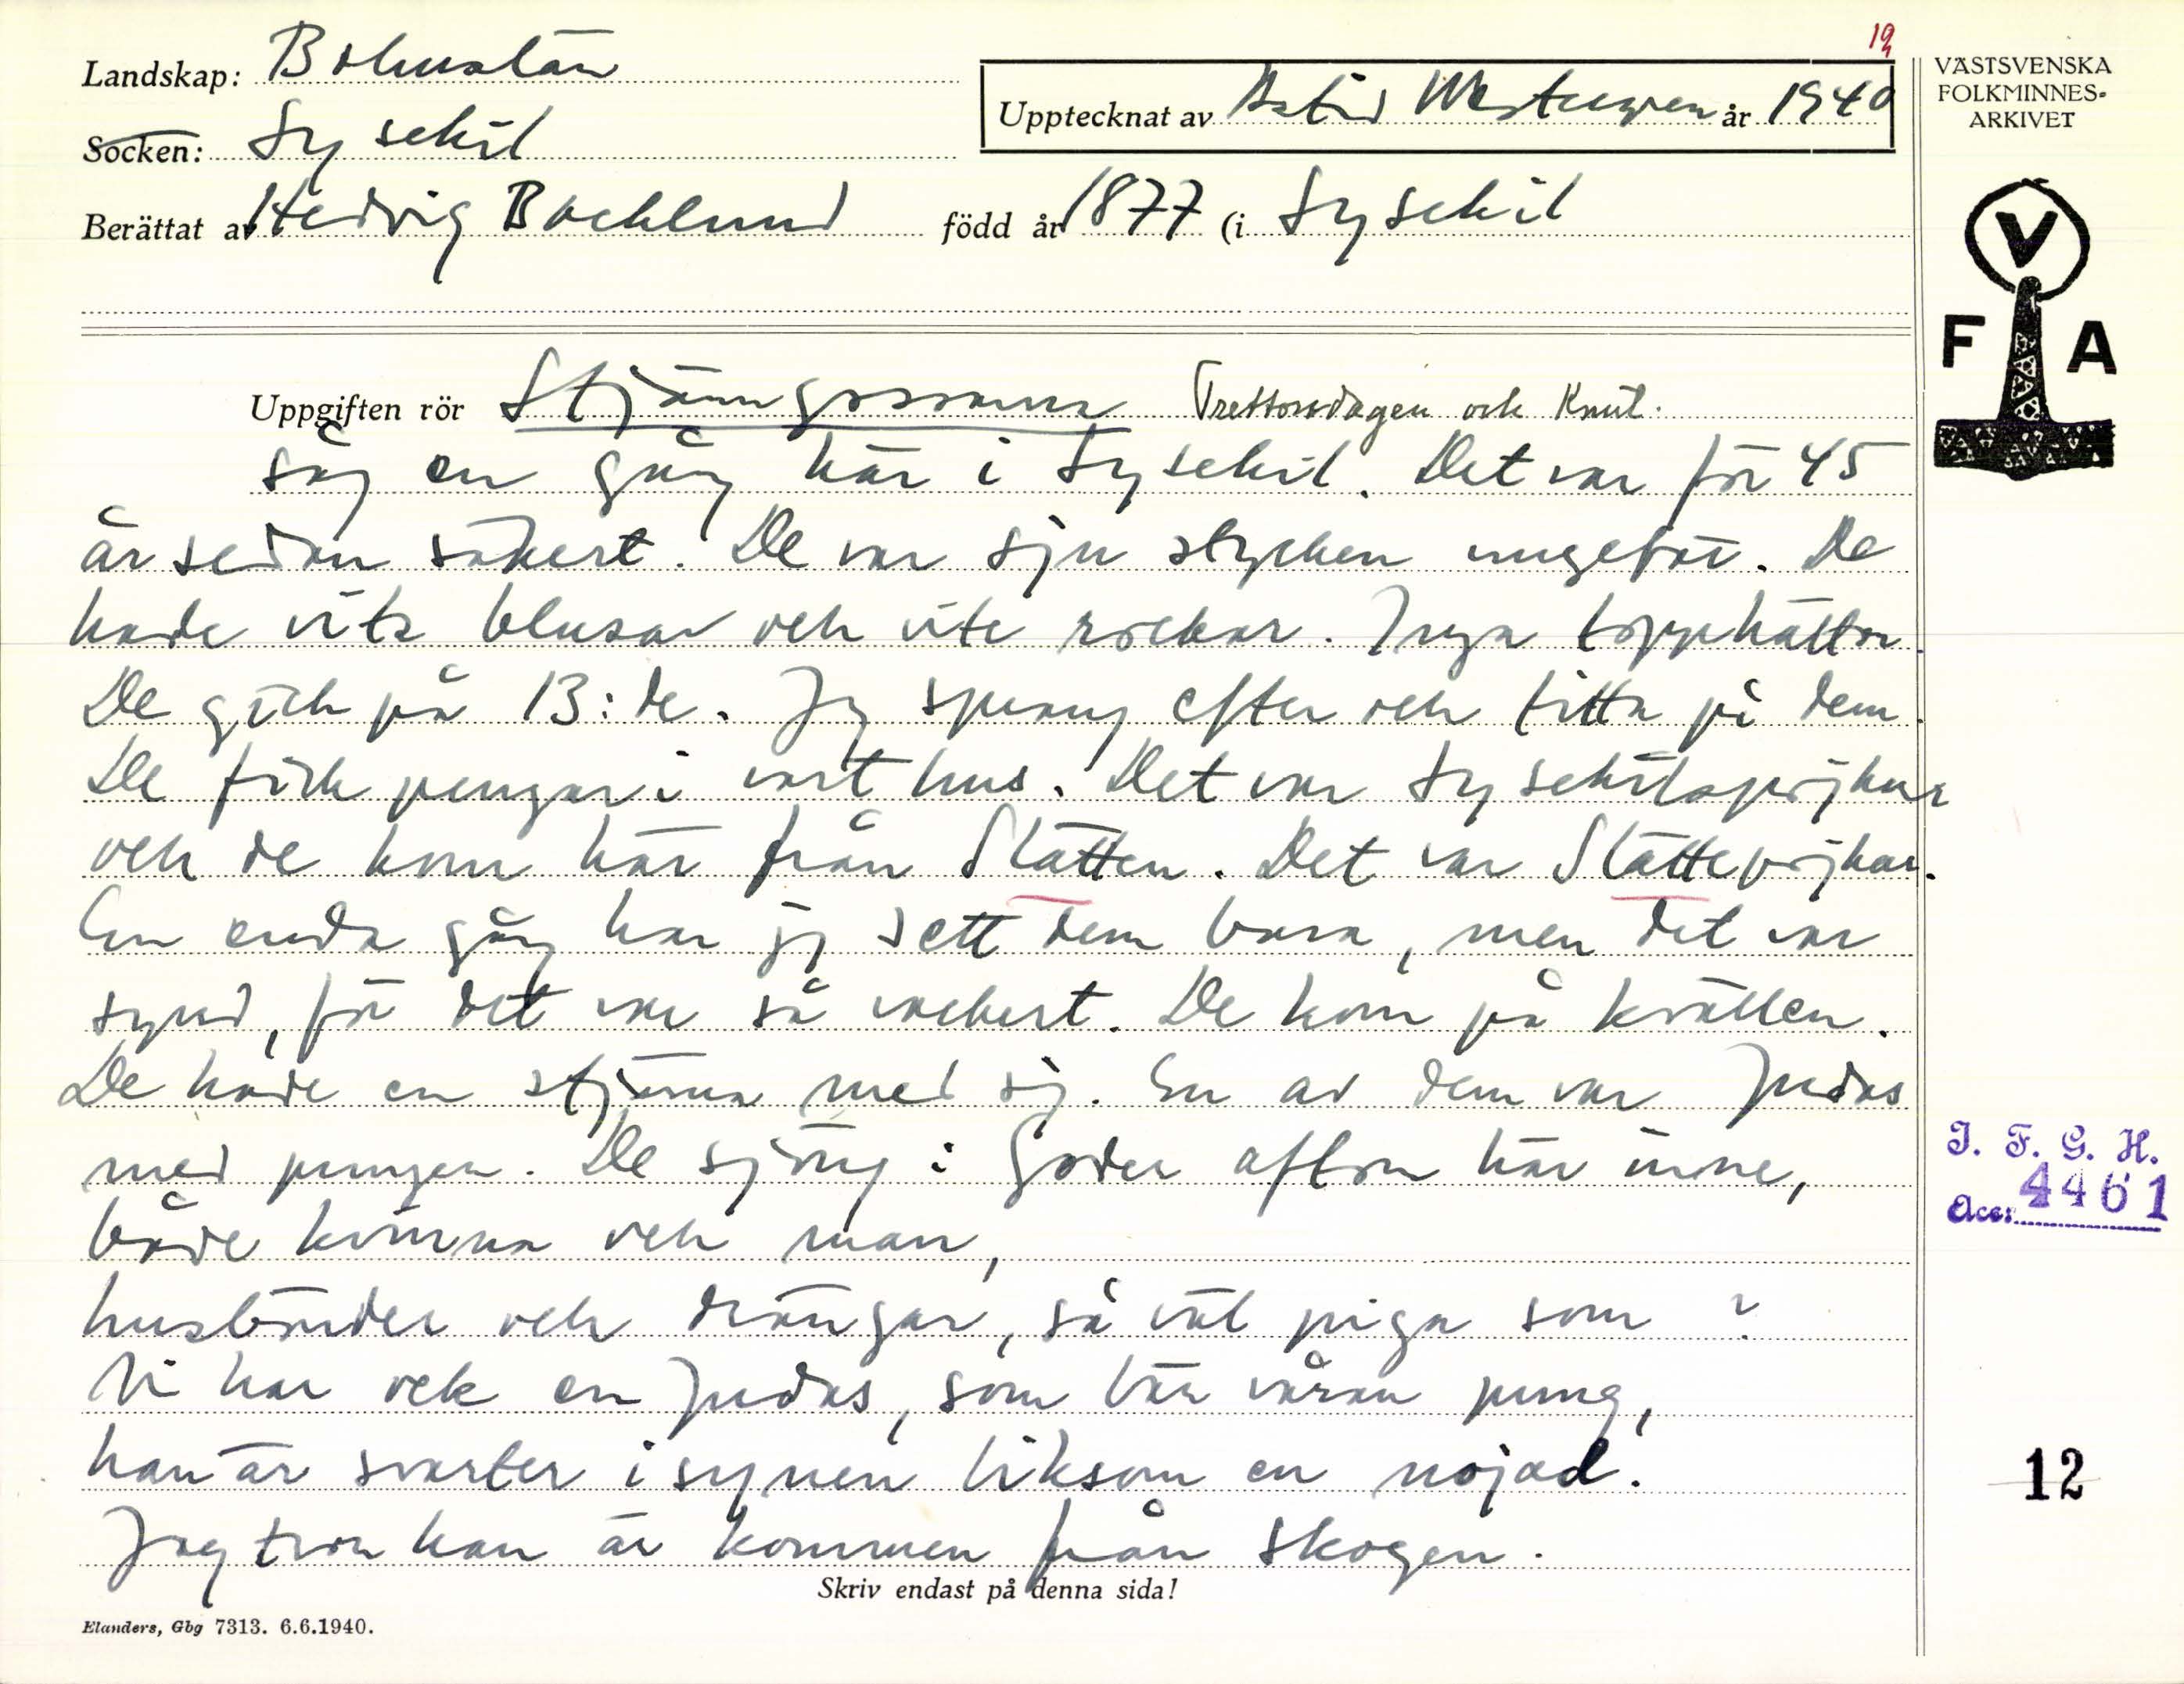 19
Landskap: Bohuslän
Upptecknat av Astrid Westergren år 1940
Socken: Lysekil
Berättat av Hedvig Backlund född år 1877 (i Lysekil
VÄSTSVENSKA
FOLKMINNES-
ARKIVET
V
F A
Uppgiften rör Stjärngossarna Trettondagen och Knut.
såg en gång här i Lysekil. Det var för 45
år sedan säkert. De var sju stycken ungefär. De
hade vita blusar och vite rockar. Inga topphättor.
De gick på 13:de. Jag sprang efter och titta på dem.
De fick pengar i vart hus. Det var Lysekilspojkar
och de kom här från Slätten. Det var Slättepojkar.
En enda gång har jag sett dem bara, men det var
synd, för det var så vackert. De kom på kvällen.
De hade en stjärna med sig. En av dem var Judas
med pungen. De sjöng: Goder afton här inne,
både kvinna och man,
husbönder och drängar, så väl piga som ?
Vi har ock en Judas, som bär våran pung,
han är svarter i synen liksom en nojad.
Jag tror han är kommen från skogen.
Skriv endast på denna sida!
Elanders, Gbg 7313. 6.6.1940.
I. F. G. H.
Acc: 4461
12